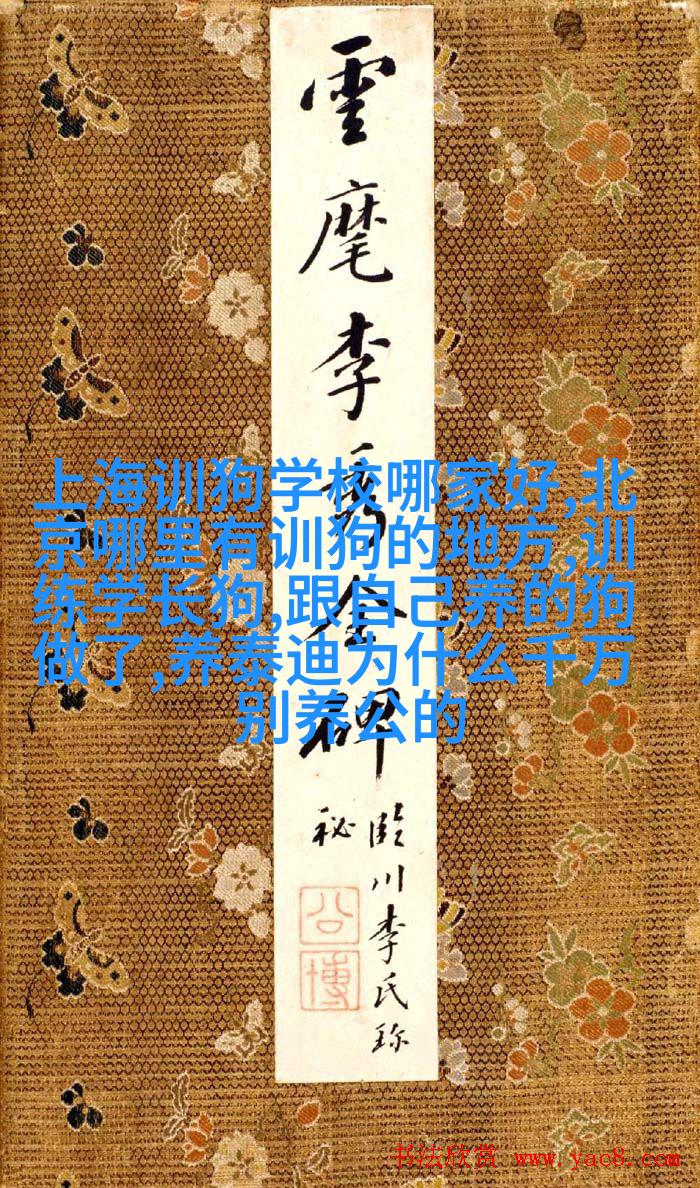 雲麾李秀全碑
臨川李氏珍
秘
公博
上海训狗学校哪家好,北
京哪里有训狗的地方,训
练学长狗,跟自己养的狗
做了,养泰迪为什么千万
别养公的
书法欣赏 www.yac8.com